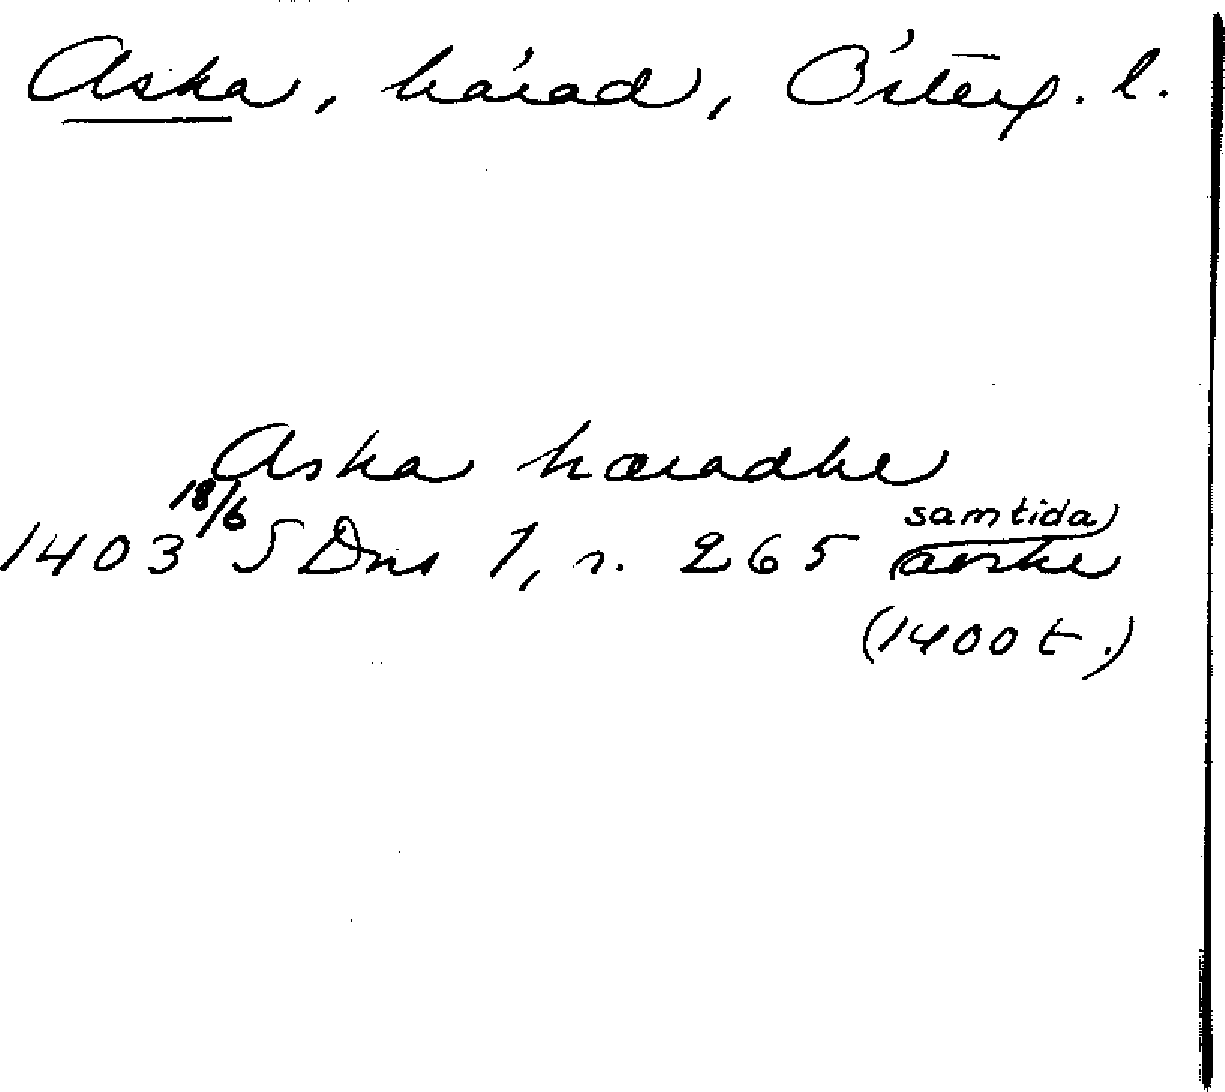 Aska, härad, Österg. l.
Aska hæradhe
18/6 samtida
1403 SDns 1, s. 265 avskr
(1400 t.)